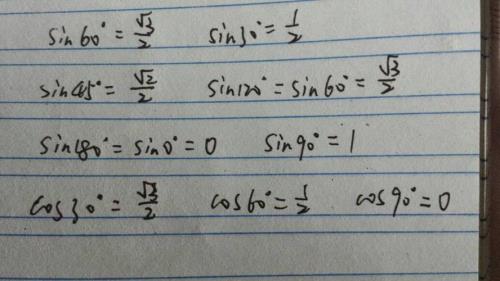 sin60°=√3/2 sin30°=1/2
sin45°=√2/2 sin120°=sin60°=√3/2
sin180°=sin0°=0 sin90°=1
cos30°=√3/2 cos60°=1/2 cos90°=0